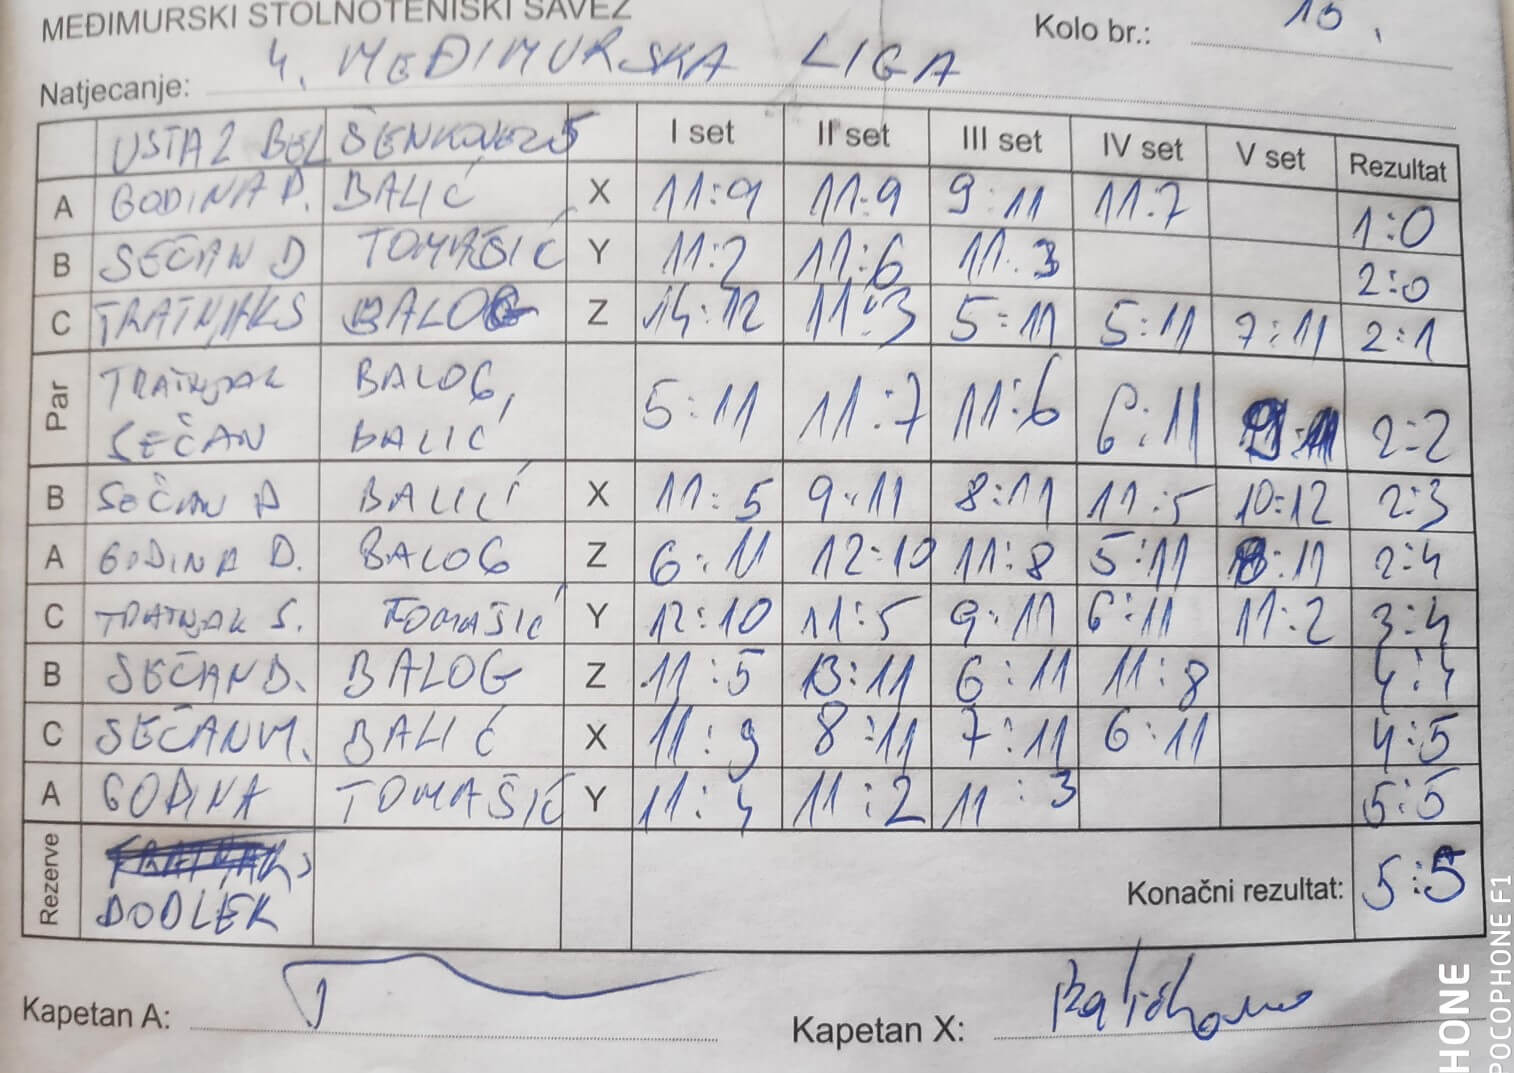 MEĐIMURSKI STOLNOTENISKI SAVEZ
Kolo br.:
Natjecanje: 4. MEĐIMURSKA LIGA
USTA 2 BEL ŠENKOVEC 5 I set II set III set IV set V set Rezultat
A GODINA D. BALIĆ X 11:9 11:9 9:11 11:7 1:0
B SEČAN D TOMAŠIĆ Y 11:2 11:6 11:3 2:0
C TRATNJAK S BALOG Z 14:12 11:3 5:11 5:11 7:11 2:1
Par TRATNJAK BALOG, 5:11 11:7 11:6 6:11 9:11 2:2
SEČAN BALIĆ
B SEČAN D BALIĆ X 11:5 9:11 8:11 11:5 10:12 2:3
A GODINA D. BALOG Z 6:11 12:10 11:8 5:11 8:11 2:4
C TRATNJAK S. TOMAŠIĆ Y 12:10 11:5 9:11 6:11 11:2 3:4
B SEČAN D. BALOG Z 11:5 13:11 6:11 11:8 4:4
C SEČAN M. BALIĆ X 11:9 8:11 7:11 6:11 4:5
A GODINA TOMAŠIĆ Y 11:4 11:2 11:3 5:5
Rezerve DODLEK Konačni rezultat: 5:5
Kapetan A:
Kapetan X:
HONE
POCOPHONE F1